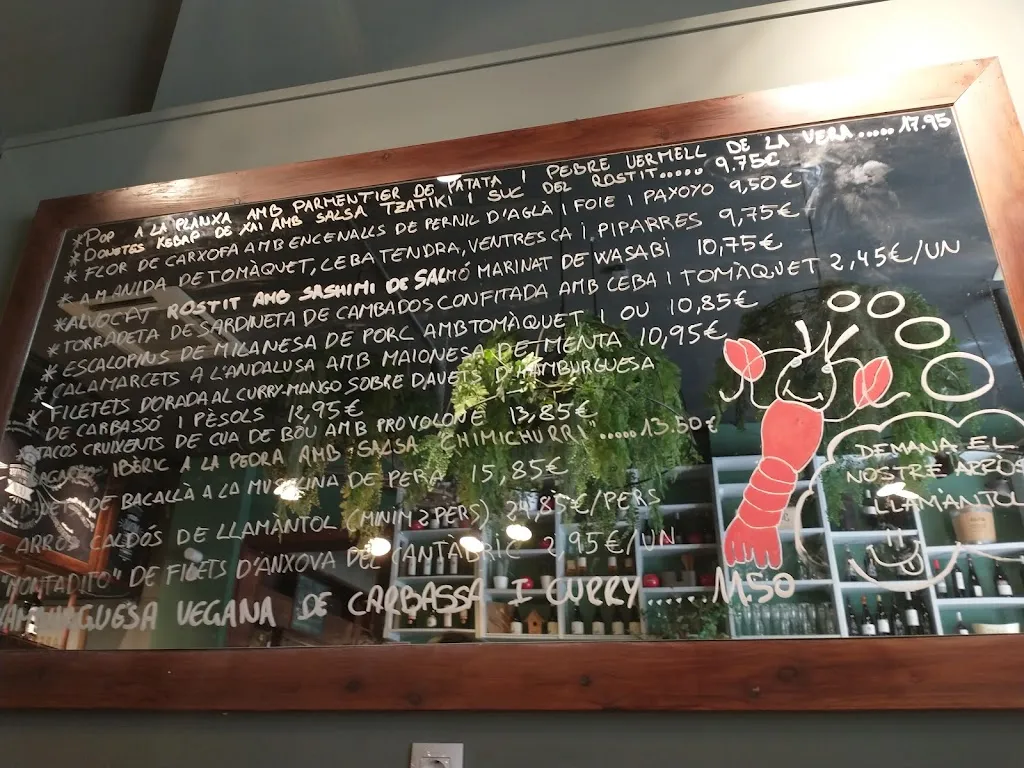 *POP A LA PLANXA AMB PARMENTIER DE PATATA I PEBRE VERMELL DE LA VERA..... 17.95
*DONUTES KEBAP DE XAI AMB SALSA TZATIKI I SUC DEL ROSTIT..... 9.75€
* FLOR DE CARXOFA AMB ENCENALLS DE PERNIL D'AGLÀ I FOIE I PAYOYO 9,50€
* AMANIDA DE TOMÀQUET, CEBA TENDRA, VENTRESCA I PIPARRES 9,75€
*ALVOCAT ROSTIT AMB SASHIMI DE SALMÓ MARINAT DE WASABI 10,75€
* TORRADETA DE SARDINETA DE CAMBADOS CONFITADA AMB CEBA I TOMÀQUET 2,45€/UN
* ESCALOPINS DE MILANESA DE PORC AMB TOMÀQUET I OU 10,85€
* CALAMARCETS A L'ANDALUSA AMB MAIONESA DE MENTA 10,95€
* FILETETS DORADA AL CURRY-MANGO SOBRE DAUETS D'HAMBURGUESA
DE CARBASSÓ I PÈSOLS 12,95€
*TACOS CRUIXENTS DE CUA DE BOU AMB PROVOLONE 13,85€
IBÈRIC A LA PEDRA AMB "SALSA CHIMICHURRI"..... 13.50€
DE BACALLÀ A LA MUSELINA DE PERA 15,85€
ARRÒS CALDÓS DE LLAMÀNTOL (MÍNIM 2 PERS) ,85€/PERS
"MONTADITO" DE FILETS D'ANXOVA DEL CANTÀBRIC 2,95€/UN
HAMBURGUESA VEGANA DE CARBASSA I CURRY..... 11.50
DEMANA EL
NOSTRE ARRÒS
LLAMÀNTOL